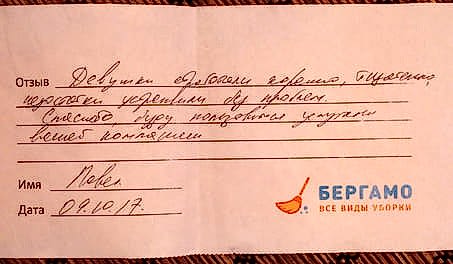 Отзыв Девушки сработали хорошо, тщательно,
недостатки устранили без проблем.
Спасибо, буду пользоваться услугами
вашей компании
Имя Павел
Дата 09.10.17.
БЕРГАМО
ВСЕ ВИДЫ УБОРКИ